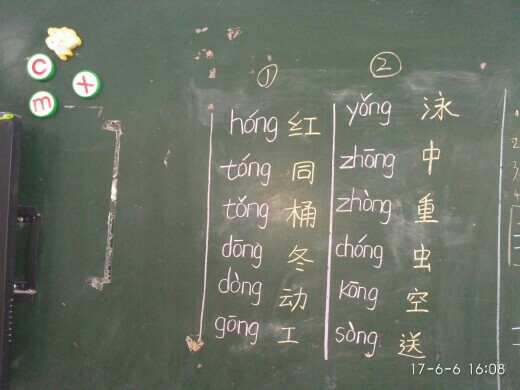 ①
hóng 红
tóng 同
tǒng 桶
dōng 冬
dòng 动
gōng 工
②
yǒng 泳
zhōng 中
zhòng 重
chóng 虫
kōng 空
sòng 送
C
x
m
17-6-6 16:08